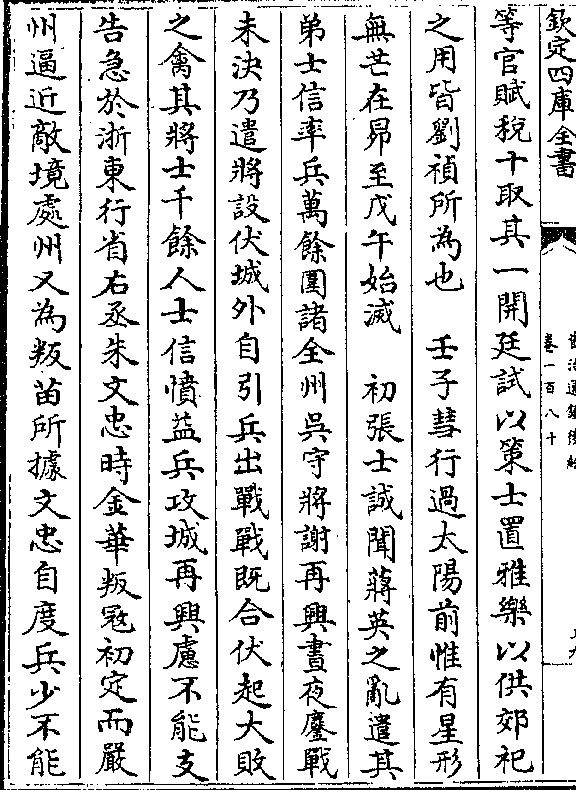 欽定四庫全書
卷一百八十
等官賦稅十取其一開廷試以策士置雅樂以供郊祀
之用皆劉禎所為也　壬子彗行過太陽前惟有星形
無芒在昴至戊午始滅　初張士誠聞蔣英之亂遣其
弟士信率兵萬餘圍諸全州吳守將謝再興晝夜鏖戰
未決乃遣將設伏城外自引兵出戰戰既合伏起大敗
之禽其將士千餘人士信憤益兵攻城再興慮不能支
告急於浙東行省右丞朱文忠時金華叛冦初定而嚴
州逼近敵境處州又為叛苗所據文忠自度兵少不能